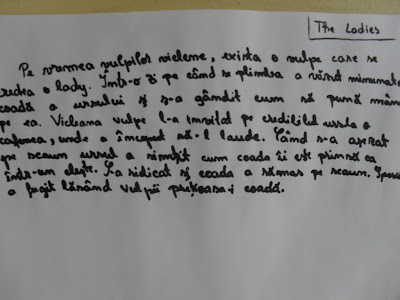 The Ladies
Pe vremea vulpilor viclene, exista o vulpe care se
credea o lady. Într-o zi pe când se plimba a văzut minunata
coadă a ursului și s-a gândit cum să pună mâna
pe ea. Vicleana vulpe l-a invitat pe credulul urs la o
cafenea, unde a început să-l laude. Când s-a așezat
pe scaun ursul a simțit cum coada îi este prinsă ca
într-un clește. S-a ridicat și coada a rămas pe scaun. Speriat
a fugit lăsând vulpii prețioasa-i coadă.